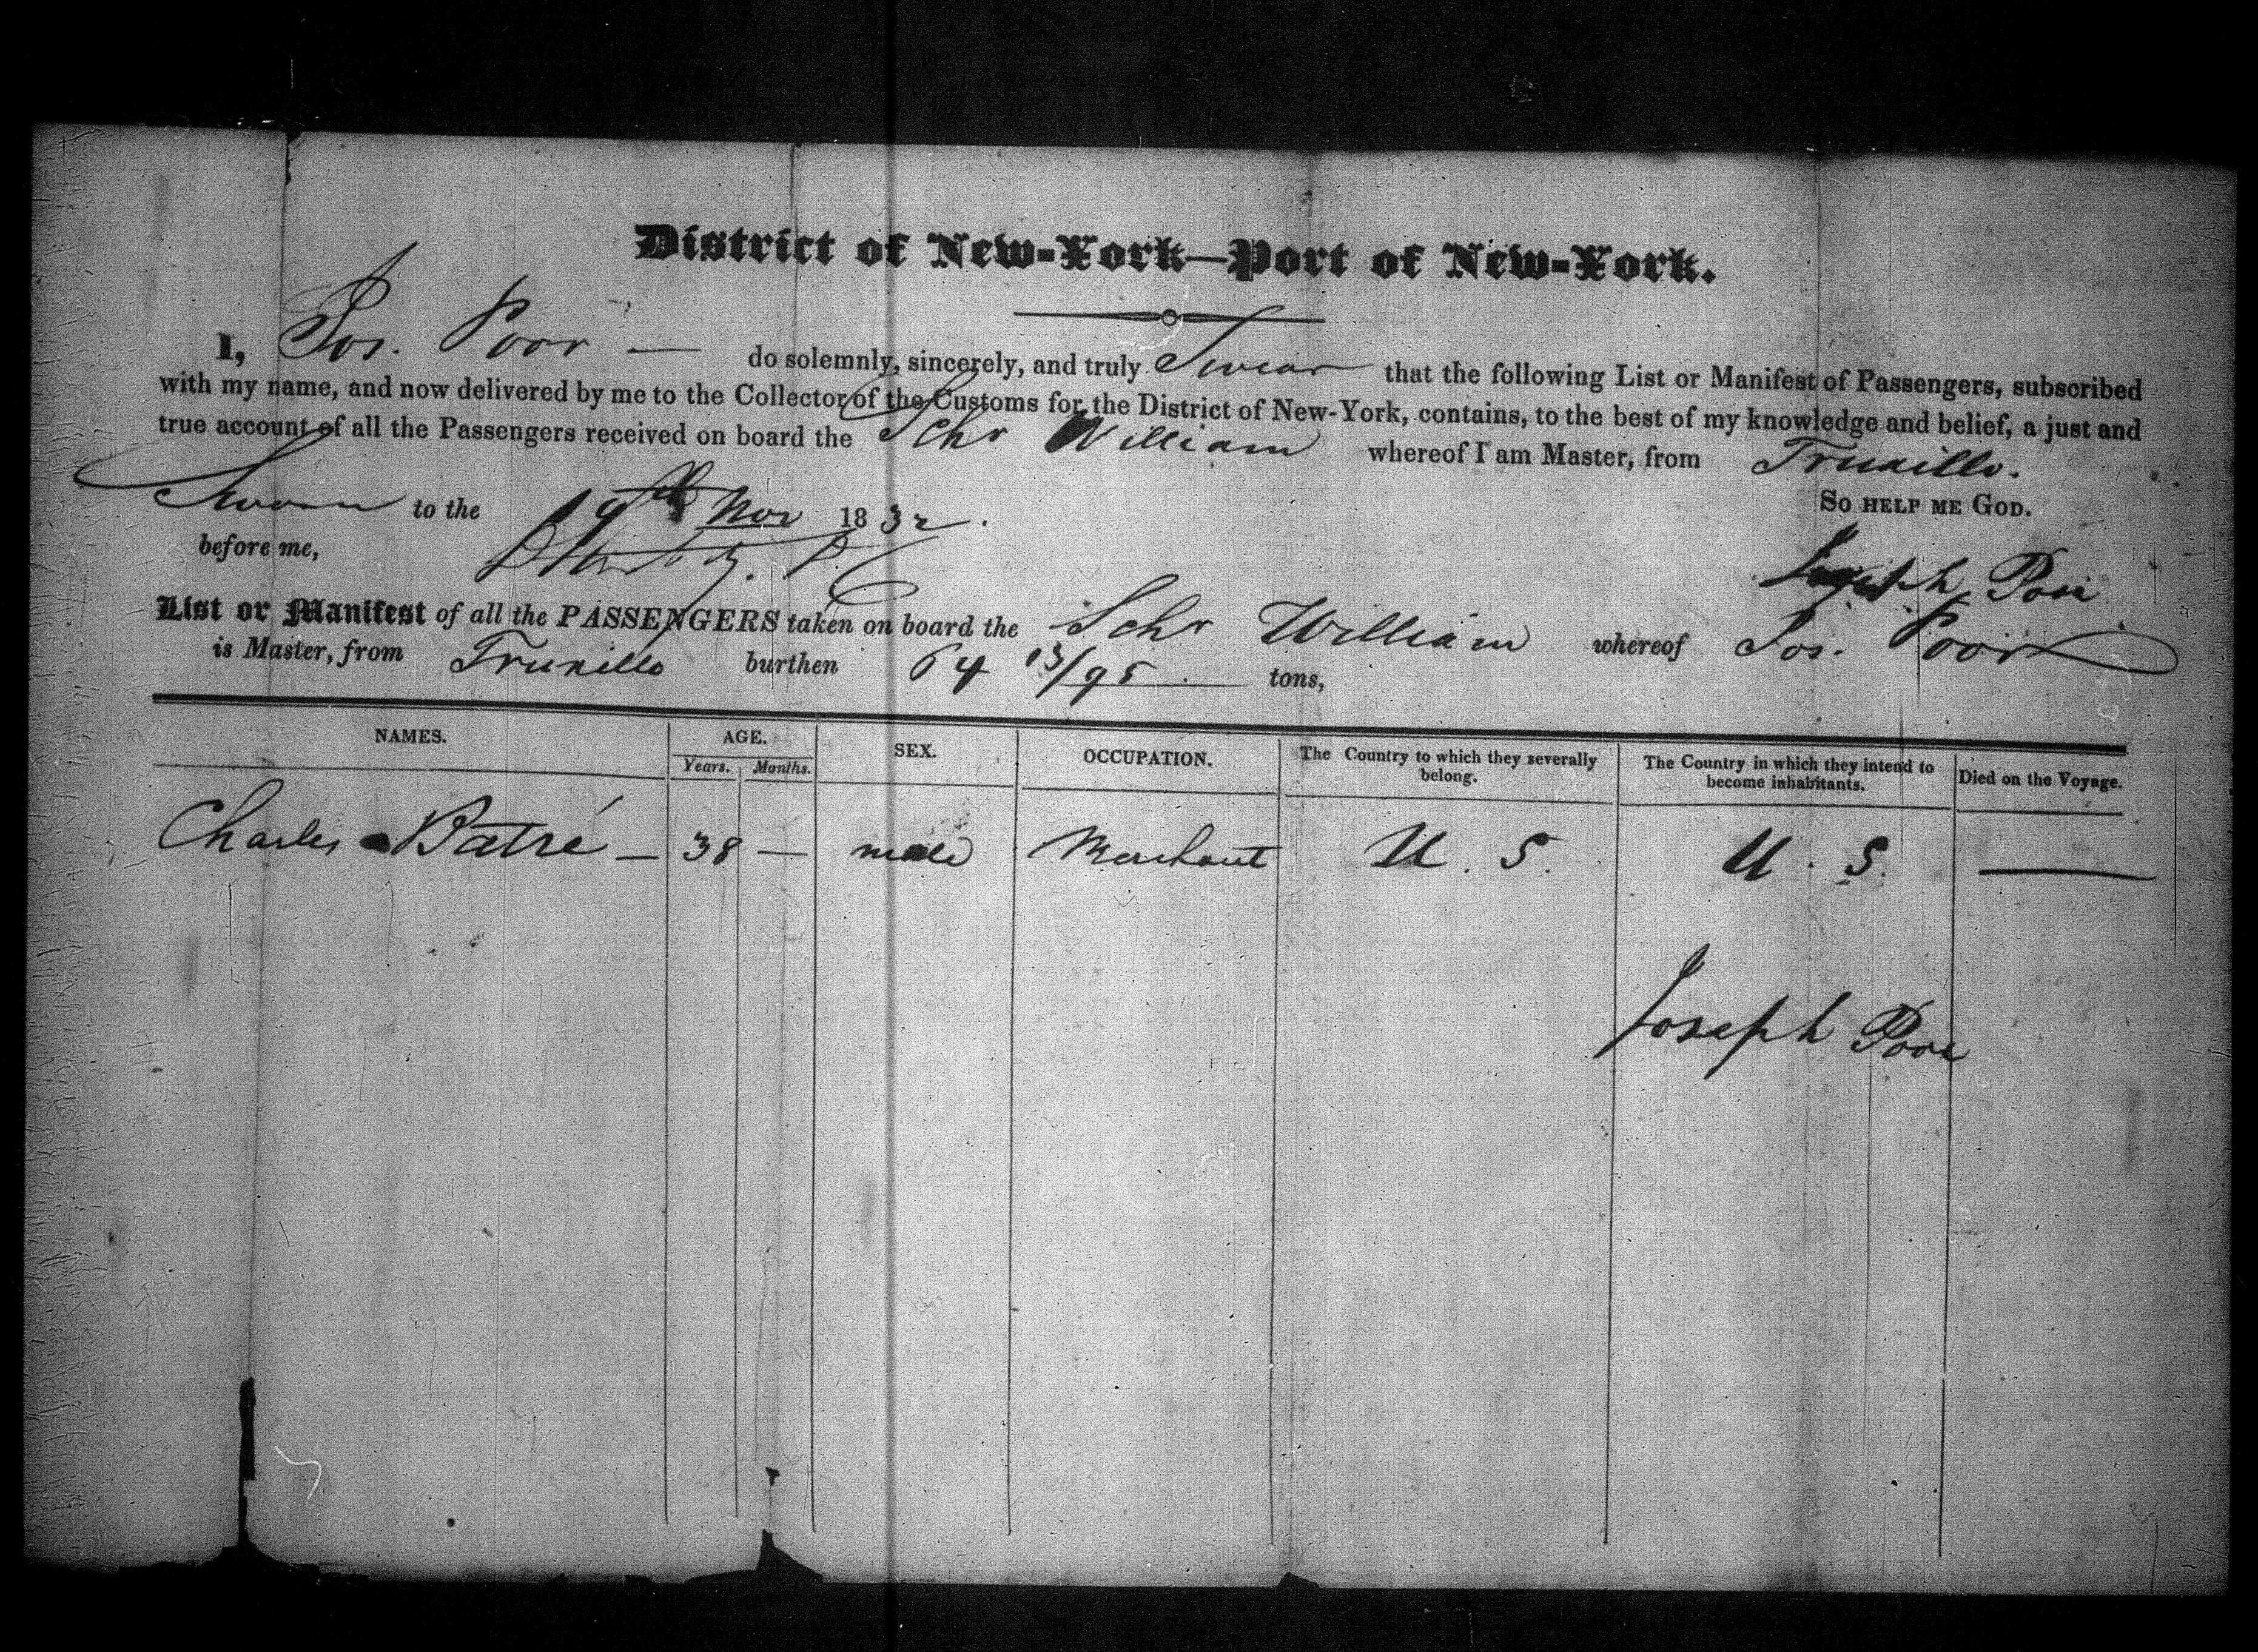 District of New-York—Port of New-York.
I, Jos. Poor — do solemnly, sincerely, and truly Swear that the following List or Manifest of Passengers, subscribed
with my name, and now delivered by me to the Collector of the Customs for the District of New-York, contains, to the best of my knowledge and belief, a just and
true account of all the Passengers received on board the Schr William whereof I am Master, from Truxillo.
Sworn to the 19th Nov 1832. So help me God.
before me,
Joseph Poor
List or Manifest of all the PASSENGERS taken on board the Schr William whereof Jos. Poor
is Master, from Truxillo burthen 64 13/95 tons,
NAMES. AGE. SEX. OCCUPATION. The Country to which they severally belong. The Country in which they intend to become inhabitants. Died on the Voyage.
Years. Months.
Charles Batré — 38 — male Merchant U. S. U. S. —
Joseph Poor